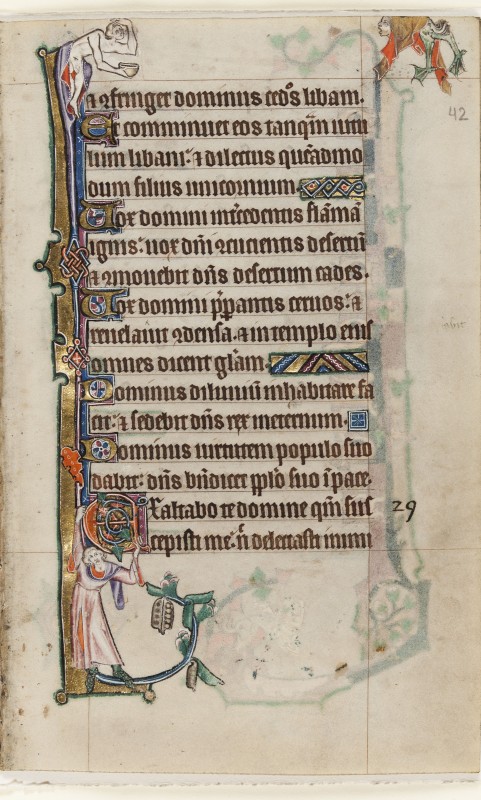 ⁊ ꝯfringet dominus cedros libani.
Et comminuet eos tanqͣm uitu
lum libani: ⁊ dilectus quēadmo
dum filius unicornium.
Uox domini int̄cedentis flāmā
ignis: uox dn̄i ꝯcucientis desertū
⁊ ꝯmouebit dn̄s desertum cades.
Uox domini p̄parantis ceruos: ⁊
reuelauit ꝯdensa. ⁊ in templo eius
omnes dicent gl̄am.
Dominus diluuiū inhabitare fa
cit: ⁊ sedebit dn̄s rex ineternum.
Dominus uirtutem populo suo
dabit: dn̄s bn̄dicet pp̄lo suo ī pace.
Exaltabo te domine qm̄ sus
cepisti me: n̄ delectasti inimi
42
29